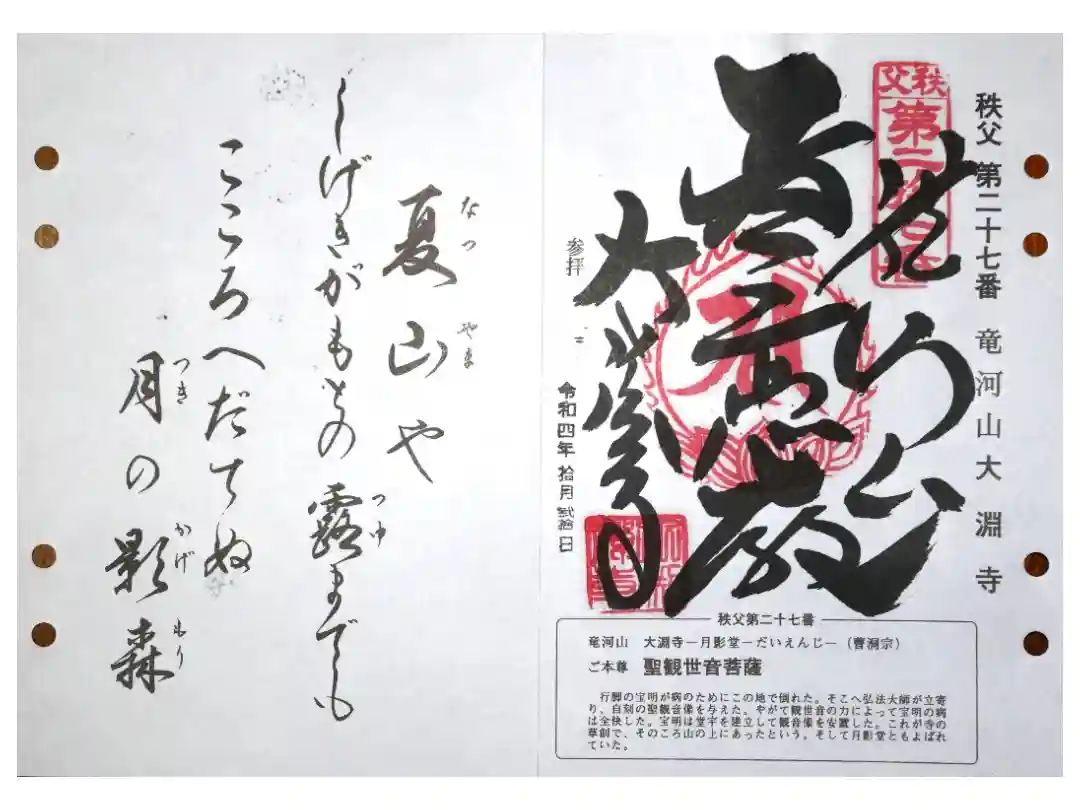 秩父 第二十七番 竜河山大淵寺
秩父
参拝
令和四年 拾月 弐拾日
秩父第二十七番
竜河山 大淵寺―月影堂―だいえんじ―(曹洞宗)
ご本尊 聖観世音菩薩
行脚の宝明が病のためにこの地で倒れた。そこへ弘法大師が立寄
り、自刻の聖観音像を与えた。やがて観世音の力によって宝明の病
は全快した。宝明は堂宇を建立して観音像を安置した。これが寺の
草創で、そのころ山の上にあったという。そして月影堂ともよばれ
ていた。
夏山や
なつ やま
しげきがもとの露までも
つゆ
こころへだてぬ
月の影森
つき かげ もり